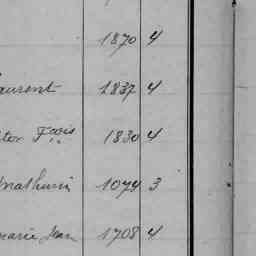 1870 4
aurent 1837 4
tor Fçois 1830 4
mathurin 1079 3
marie Jean 1708 4